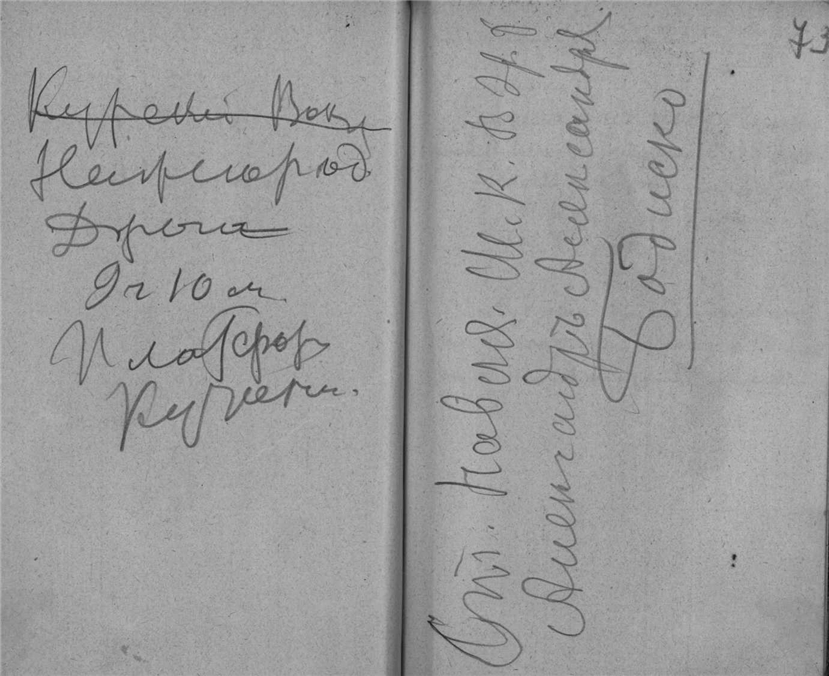 Курский Вокз
Нижегород.
Дрога
9 ч 10 м.
Платфор
73
Ст. Навля. М. К. В ж. д
Александръ Александр
Бодиско